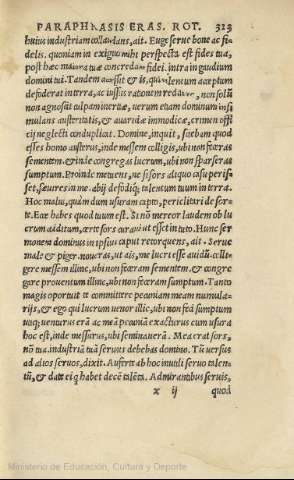 PARAPHRASIS ERAS. ROT. 323
huius industriam collaudans, ait. Euge serue bone ac fi-
delis. quoniam in exiguo mihi perspecta est fides tua,
post hac maiora tuæ concredam fidei. intra in gaudium
domini tui. Tandem accessit & is, qui talentum acceptum
defoderat in terra, ac iussus rationem reddere, non solũ
non agnoscit culpam inertiæ, verum etiam dominum insi
mulans austeritatis, & auaritiæ immodicæ, crimen offi
cij neglecti conduplicat. Domine, inquit, sciebam quod
esses homo austerus, inde messem colligis, ubi non feceras
sementem. & inde congregas lucrum, ubi non sparseras
sumptum. Proinde metuens, ne si sors aliquo casu peris-
set, sæuires in me. abij defodiq; talentum tuum in terra.
Hoc malui, quàm dum usuram capto, periclitari de sor-
te. Ecce habes quod tuum est. Si nõ mereor laudem ob lu
crum additum, certe sors curaui ut esset in tuto. Hunc ser
monem dominus in ipsius caput retorquens, ait. Serue
male & piger. noueras, ut ais, me lucri esse auidũ. colli-
gere messem illinc, ubi non fecerim sementem. & congre
gere prouentum illinc, ubi non fecerim sumptum. Tanto
magis oportuit te committere pecuniam meam numula-
rijs, & ego qui lucrum uenor illic, ubi non feci sumptum
utiq; uenturus erã ac meã pecuniã exacturus cum usura
hoc est, inde messurus, ubi seminauerã. Mea erat sors,
nõ tua. industriã tuã serue debebas domino. Tũ versus
ad alios seruos, dixit. Auferte ab hoc inutili seruo talen-
tũ, & date ei q̃ habet decẽ talẽta. Admirantibus seruis,
x ij quod
Ministerio de Educación, Cultura y Deporte